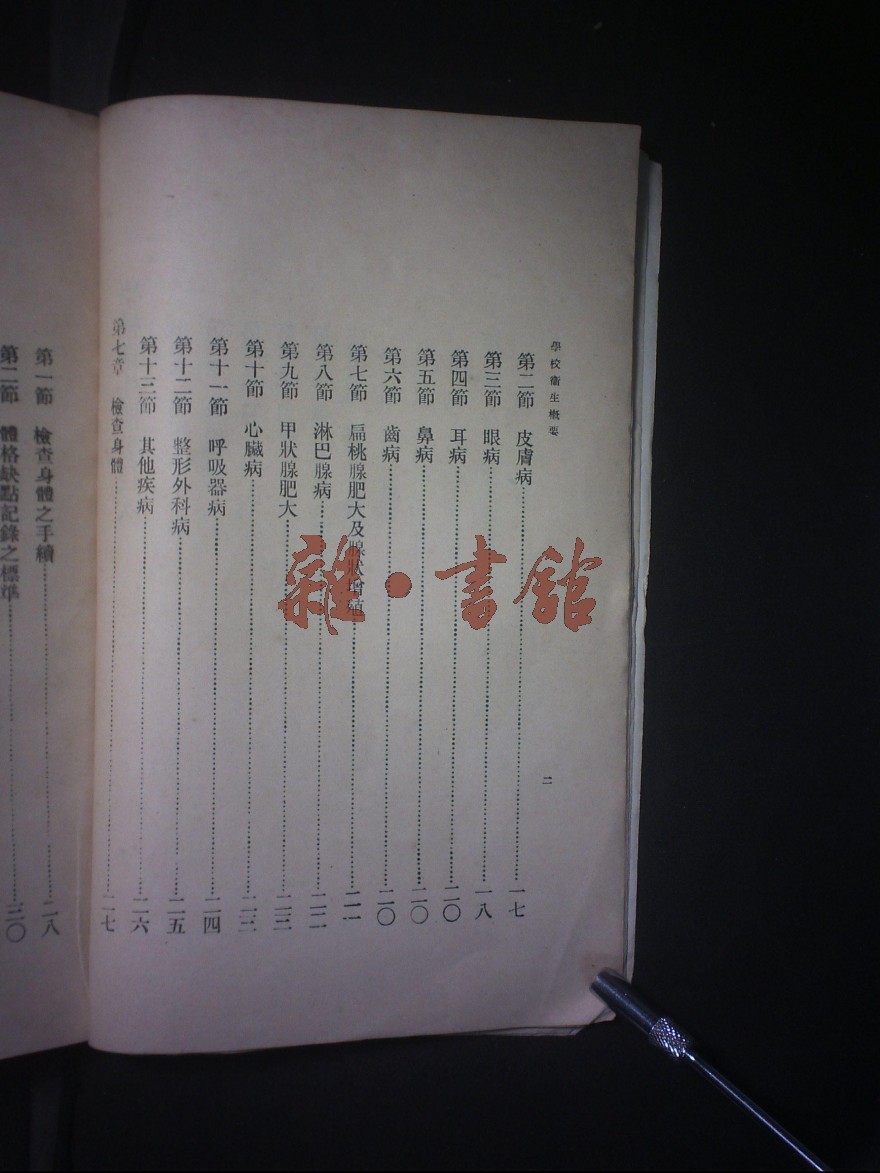 學校衞生概要
二
第二節 皮膚病 一七
第三節 眼病 一八
第四節 耳病 二〇
第五節 鼻病 二〇
第六節 齒病 二〇
第七節 扁桃腺肥大及腺狀增殖 二一
第八節 淋巴腺病 二二
第九節 甲狀腺肥大 二三
第十節 心臟病 二三
第十一節 呼吸器病 二四
第十二節 整形外科病 二五
第十三節 其他疾病 二六
第七章 檢查身體 二七
第一節 檢查身體之手續 二八
第二節 體格缺點記錄之標準 三〇
雜·書館